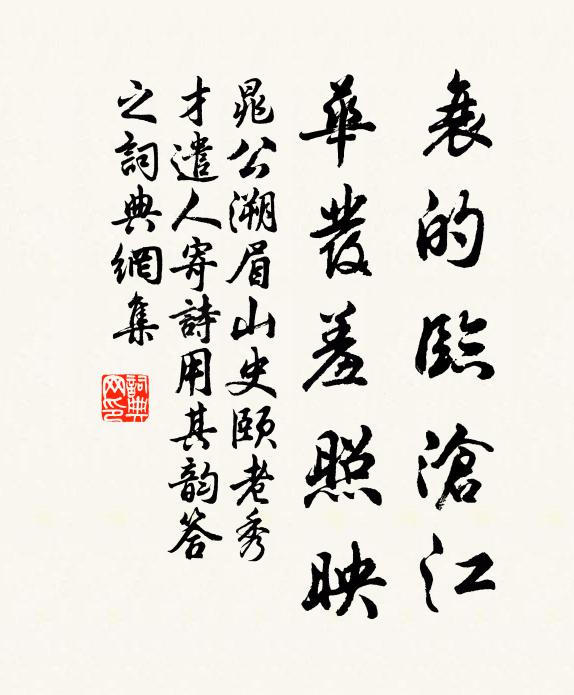 衰的臨滄江
華發羞照映
晁公溯眉山史頤老秀
才遣人寄詩用其韵答
之詞典網集
詞典
网印